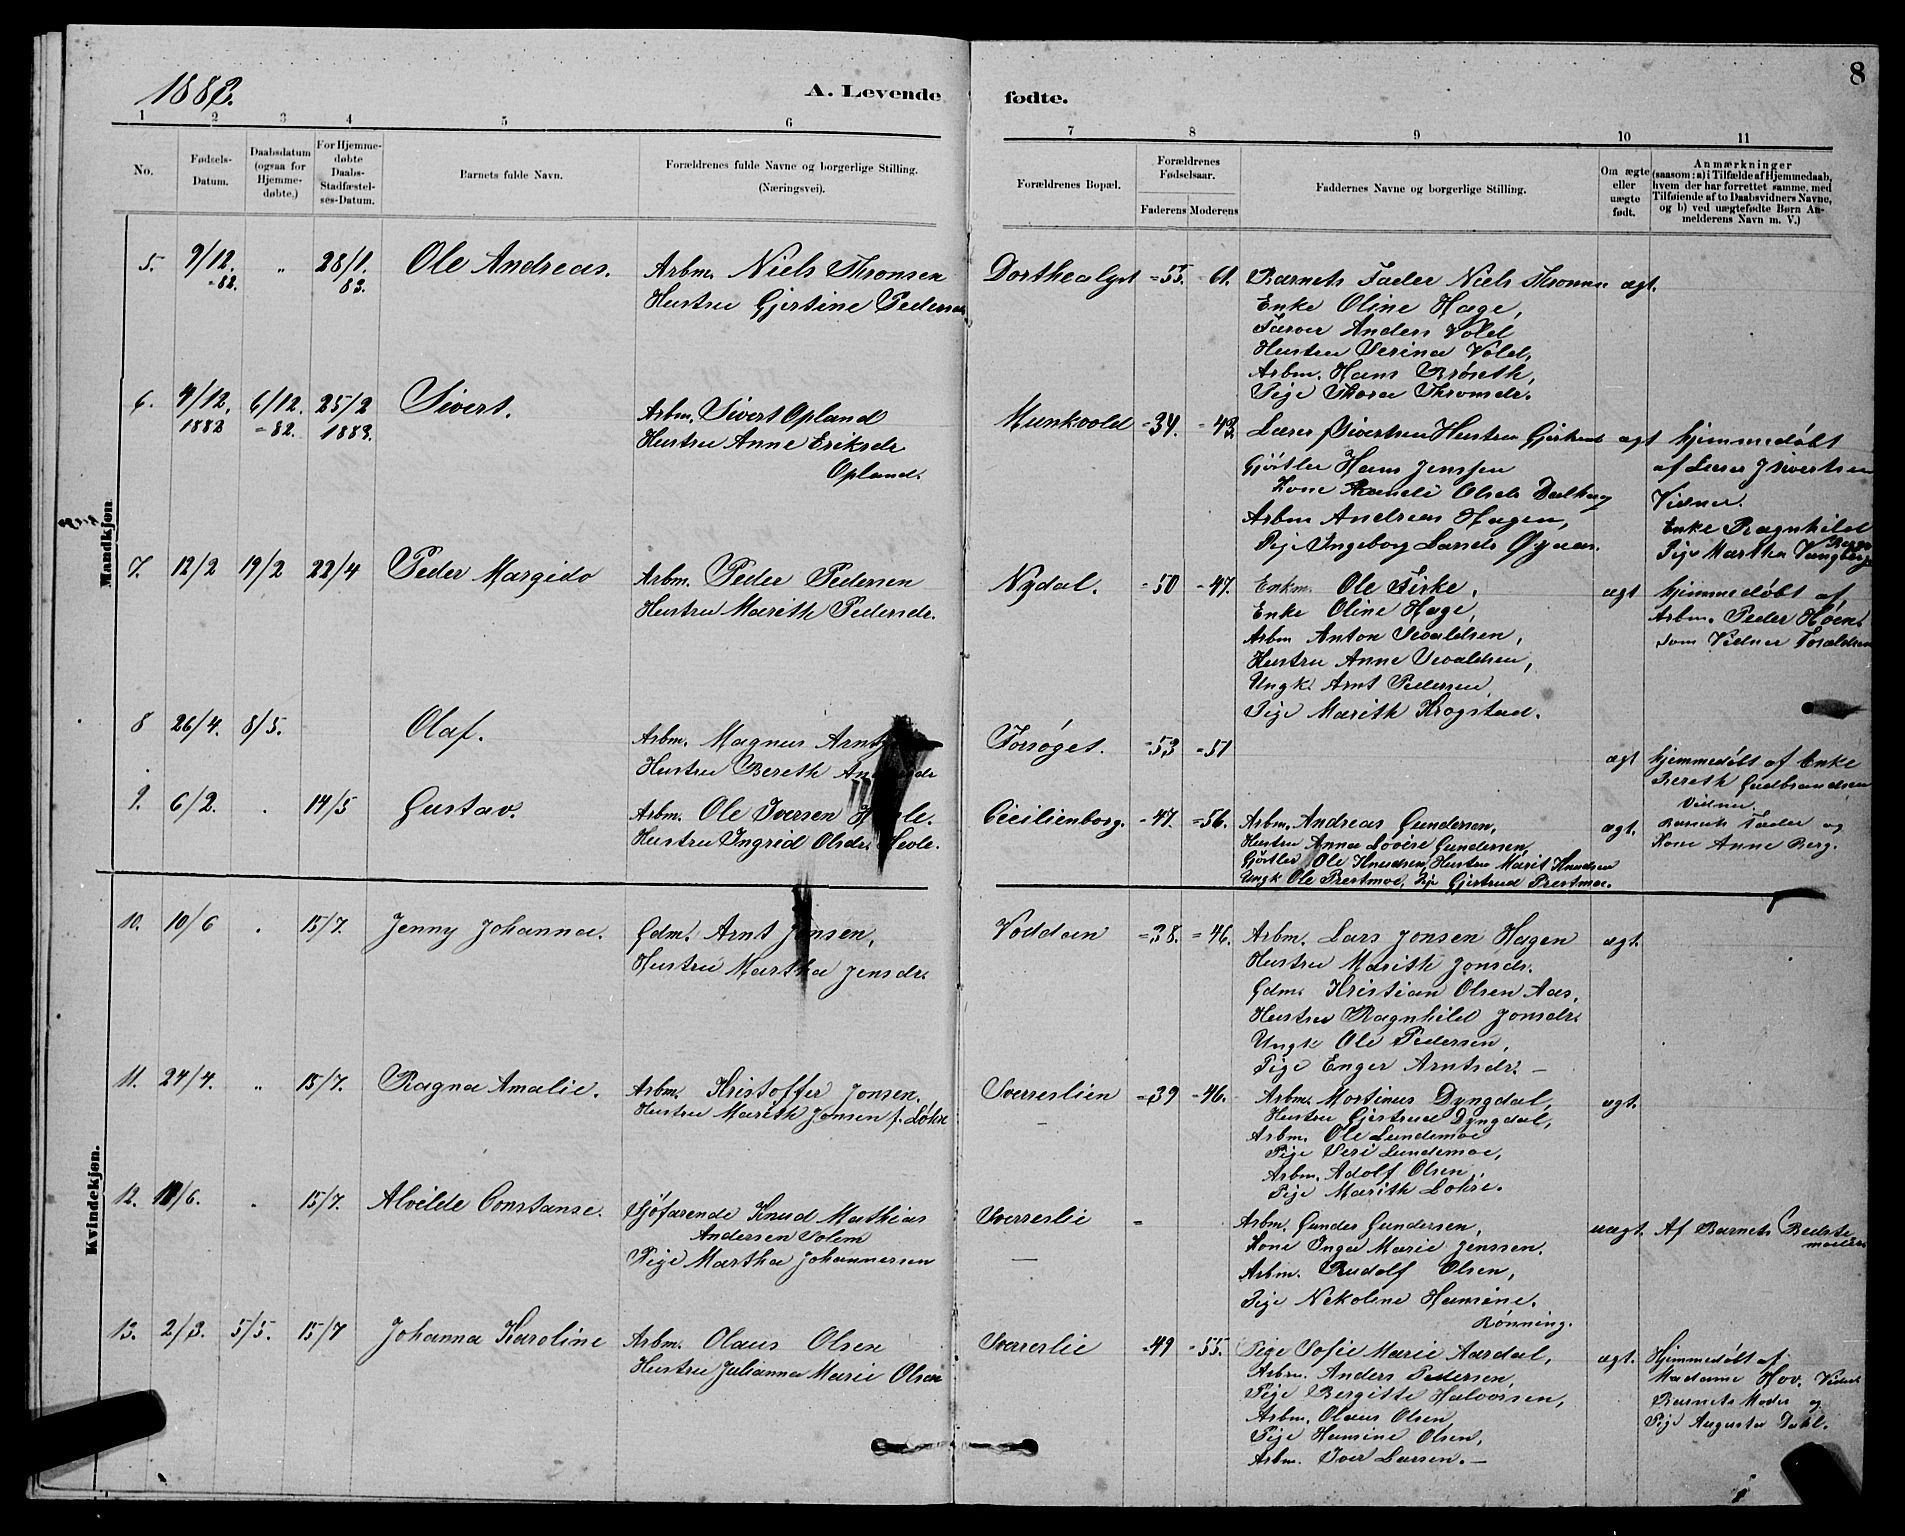 1883.
A. Levende
fødte.
8
1 2 3 4 5 6 7 8 9 10 11
No.
Fødsels-Datum.
Daabsdatum (ogsaa for Hjemme-døbte.)
For Hjemme-døbte Daabs-Stadfæstel-ses-Datum.
Barnets fulde Navn.
Forældrenes fulde Navne og borgerlige Stilling.
(Næringsvei).
Forældrenes Bopæl.
Forældrenes Fødselsaar.
Faderens Moderens
Faddernes Navne og borgerlige Stilling.
Om ægte eller uægte født.
Anmærkninger
(saasom: a) i Tilfælde af Hjemmedaab,
hvem der har forrettet samme, med
Tilføiende af to Daabsvidners Navne,
og b) ved uægtefødte Børn An-
melderens Navn m. V.)
Mandkjøn
5. 9/12. -82. " 28/1. 83. Ole Andreas.
Arbm. Niels Thronsen
Hustru Gjertine Pedersdr
Dorthealyst -55. -61.
Barnets Fader Niels Thronsen
Enke Oline Hage,
Farver Anders Vold
Hustru Serina Vold,
Arbm. Hans Brøseth,
Pige Thora Thronsdr.
ægt.
6. 4/12. 1882 6/12. -82. 25/2 1883. Sivert.
Arbm. Sivert Opland
Hustru Anne Eriksdr
Opland.
Munkvold -34. -43.
Lærer Sivertsen Hustru Gjertrud
Gjørtler Hans Jenssen
Kone Randi Olsdr Dalhaug
Arbm Andreas Hagen,
Pige Ingeborg Larsdr Øyaas.
ægt
hjemmedøbt
af Lærer J Sivertsen
Vidner.
Enke Ragnhild
Berge
Pige Martha Vangberg
7. 12/2 19/2 22/4 Peder Margido
Arbm. Peder Pedersen
Hustru Marith Pedersdr.
Nydal. -50 -47.
Enkm. Ole Firke,
Enke Oline Hage,
Arbm Anton Sivaldsen,
Hustru Anne Sivaldsen,
Ungk. Arnt Pedersen,
Pige Marith Krogstad.
ægt
hjemmedøbt af
Arbm. Peder Høiens
som Vidner Forældrene
8 26/4. 8/5. Olaf.
Arbm. Magnus
Hustru Bereth
Forsøget. -53 -51
ægt
hjemmedøbt af Enke
Bereth Gudbrandsen
Vidner
Barnets Fader og
Kone Anne Berg.
9. 6/2. . 14/5 Gustav.
Arbm. Ole Iversen Hevle.
Hustru Ingrid Olsdr. Hevle.
Cecilienborg. -47. -56.
Arbm. Andreas Gundersen,
Hustru Anna Lovise Gundersen
Gjørtler Ole Knudsen, Hustru Marit Knudsen
Ungk Ole Prestmoe, Pige Gjertrud Prestmoe.
ægt.
Kvindekjøn.
10. 10/6 . 15/7. Jenny Johanna.
Gdm. Arnt Jensen,
Hustru Martha Jensdr.
Voddan -38. -46.
Arbm. Lars Jonsen Hagen
Hustru Marith Jonsdr.
Gdm. Kristian Olsen Aas,
Hustru Ragnhild Jonsdr.
Ungk Ole Pedersen,
Pige Enger Arntsdr. —
ægt.
11. 24/4. " 15/7. Ragna Amalie.
Arbm. Kristoffer Jonsen.
Hustru Marith Jonsen f. Løkre
Sverreslien -39 -46.
Arbm. Mortinus Dyngdal,
Hustru Gjertrud Dyngdal,
Arbm. Ole Lundemoe
Pige Seri Lundemoe,
Arbm. Adolf Olsen,
Pige Marith Lokre.
ægt.
12. 11/6. . 15/7. Alvilde Constanse.
Sjøfarende Knud Mathias
Andersen Solem
Pige Martha Johannessen
Sverreslie -
—
Arbm. Gunder Gundersen,
Kone Inga Marie Jenssen.
Arbm. Rudolf Olsen,
Pige Nekoline Hansine.
Rønning.
uægt. Af Barnets Bedste
moder
13. 2/3. 5/5. 15/7 Johanna Karoline
Arbm. Olaus Olsen
Hustru Julianna Marie Olsen
Sverreslie -49 -55.
Pige Sofie Marie Aardal,
Arbm. Anders Pedersen
Pige Bergitte Halvorsen,
Arbm. Olaus Olsen,
Pige Hansine Olsen,
Arbm. Iver Larsen. —
ægt.
Hjemmedøbt af
Madame Hov. Vidner
Barnets Moder og
Pige Augusta Dahl.